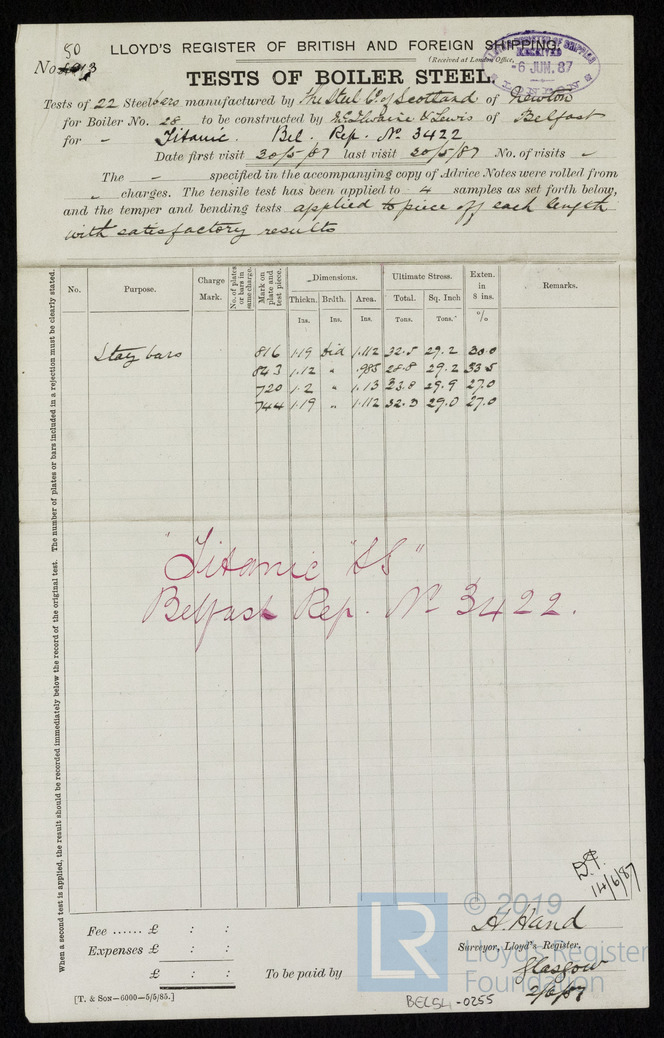 50
LLOYD'S REGISTER OF BRITISH AND FOREIGN SHIPPING.
No.
(Received at London Office,
RECEIVED
6 JUN. 87
TESTS OF BOILER STEEL.
Tests of 22 Steel bars manufactured by The Steel Co. of Scotland of Newton
for Boiler No. 28 to be constructed by McIlwaine & Lewis of Belfast
for " Titanic. Bel. Rep. No 3422
Date first visit 20/5/87 last visit 20/5/87 No. of visits "
The " specified in the accompanying copy of Advice Notes were rolled from
" charges. The tensile test has been applied to 4 samples as set forth below,
and the temper and bending tests applied to piece off each length
with satisfactory results
No. Purpose. Charge Mark. No. of plates or bars in same charge. Mark on plate and test piece. Dimensions. Ultimate Stress. Exten. in 8 ins. Remarks.
Thickn. Brdth. Area. Total. Sq. Inch
Ins. Ins. Ins. Tons. Tons. %
Stay bars 816 1.19 Dia 1.112 32.5 29.2 30.0
843 1.12 " .985 28.8 29.2 33.5
720 1.2 " 1.13 33.8 29.9 27.0
744 1.19 " 1.112 32.3 29.0 27.0
When a second test is applied, the result should be recorded immediately below the record of the original test. The number of plates or bars included in a rejection must be clearly stated.
Titanic "SS"
Belfast Rep. No 3422.
14/6/87
Fee ...... £ : :
Expenses £ : :
£ : :
To be paid by
H. Hand
Surveyor, Lloyd's Register,
Glasgow
2/6/87
[T. & SON—6000—5/5/85.]
BELS4-0255
LR
© 2019
Lloyd's Register
Foundation